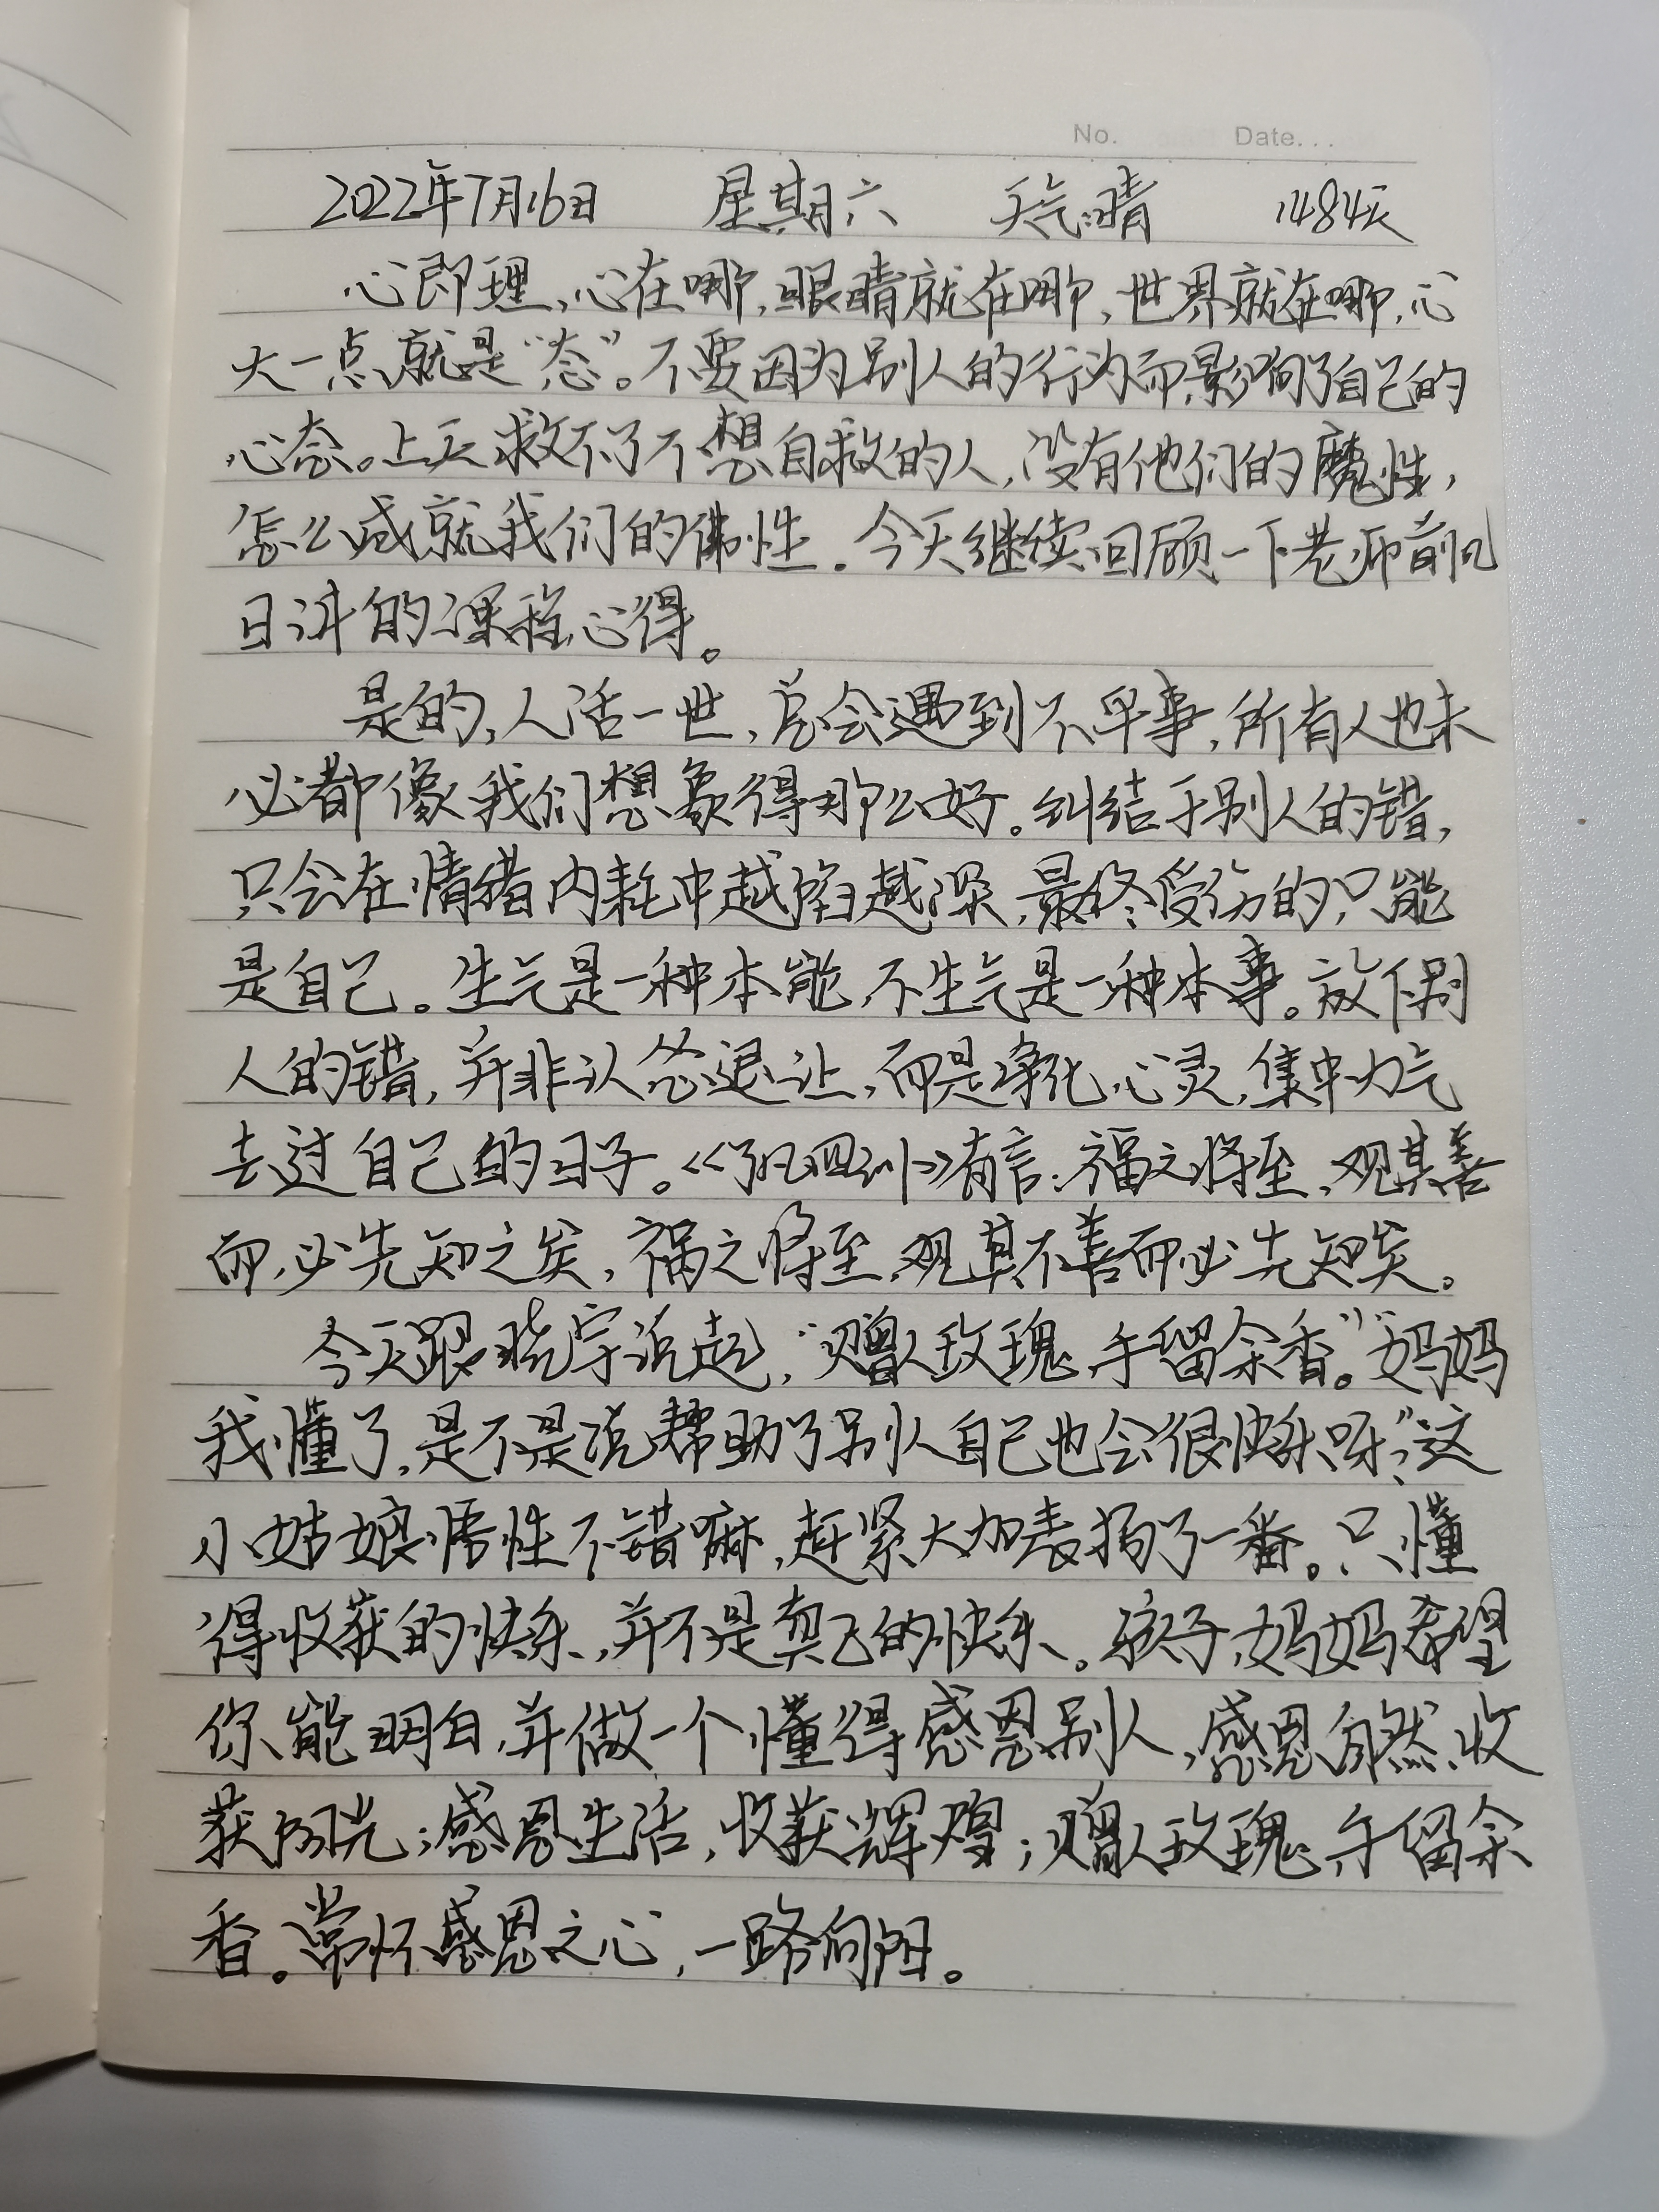 No. Date...
2022年7月16日 星期六 天气:晴 1484天
心即理、心在哪,眼睛就在哪,世界就在哪,心
大一点,就是“态”。不要因为别人的行为而影响了自己的
心态。上天救不了不想自救的人,没有他们的魔性,
怎么成就我们的佛性。今天继续回顾一下老师前几
日讲的课程心得。
是的,人活一世,总会遇到不平事,所有人也未
必都像我们想象得那么好。纠结于别人的错,
只会在情绪内耗中越陷越深,最终受伤的,只能
是自己。生气是一种本能,不生气是一种本事。放下别
人的错,并非认怂退让,而是净化心灵,集中力气
去过自己的日子。《了凡四训》有言:福之将至,观其善
而必先知之矣,祸之将至,观其不善而必先知矣。
今天跟晓宇说起,“赠人玫瑰,手留余香。”“妈妈
我懂了,是不是说帮助了别人自己也会很快乐呀?”这
小姑娘悟性不错嘛,赶紧大加表扬了一番。只懂
得收获的快乐,并不是真正的快乐。孩子,妈妈希望
你能明白,并做一个懂得感恩别人,感恩自然、收
获阳光;感恩生活,收获辉煌;赠人玫瑰,手留余
香。常怀感恩之心,一路向阳。